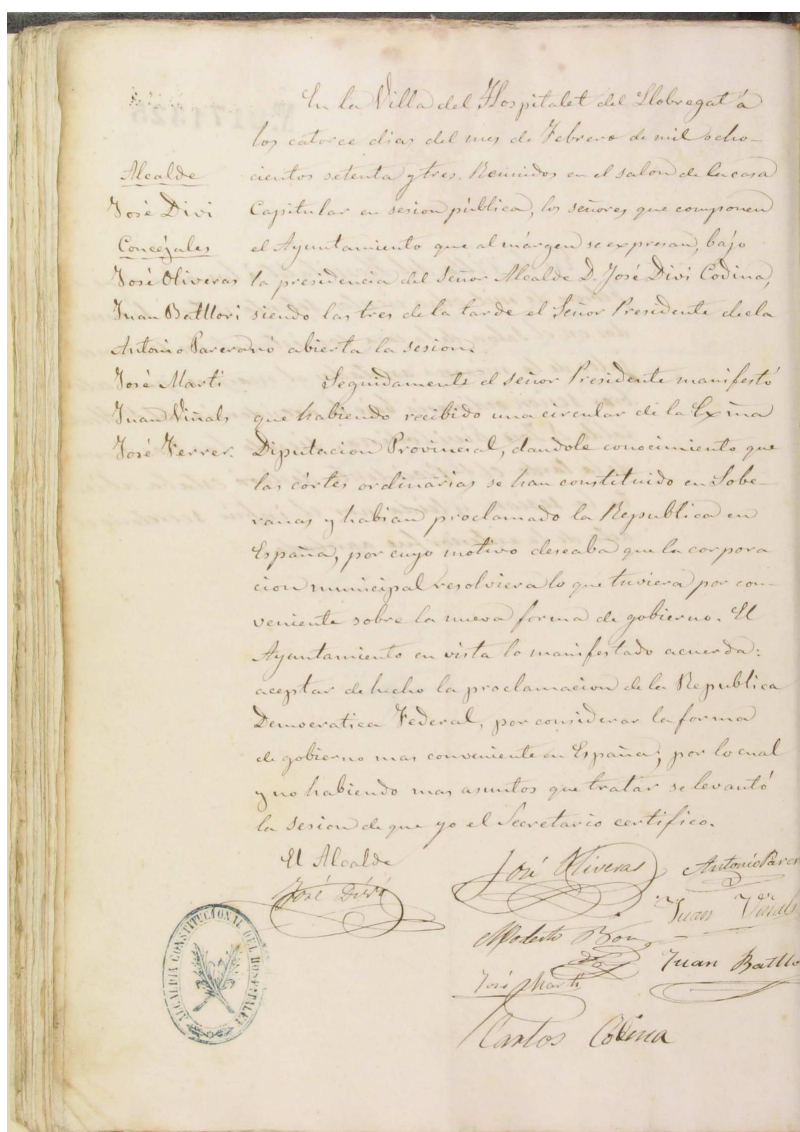 En la Villa del Hospitalet del Llobregat á
los catorce dias del mes de Febrero de mil ocho-
cientos setenta y tres. Reunidos en el salon de la casa
Capitular en sesion pública, los señores que componen
el Ayuntamiento que al márgen se expresan, bajo
la presidencia del Señor Alcalde D. José Diví Codina,
siendo las tres de la tarde el Señor Presidente decla
ró abierta la sesion.
Alcalde
José Diví
Concejales
José Oliveras
Juan Batllori
Antonio Parera
José Martí
Juan Viñals
José Ferrer.
Seguidamente el señor Presidente manifestó
que habiendo recibido una circular de la Exma
Diputacion Provincial, dandole conocimiento que
las córtes ordinarias se han constituido en Sobe-
ranas y habian proclamado la Republica en
España, por cuyo motivo deseaba que la corpora
cion municipal resolviera lo que tuviera por con-
veniente sobre la nueva forma de gobierno. El
Ayuntamiento en vista lo manifestado acuerda:
aceptar de hecho la proclamacion de la Republica
Democratica Federal, por considerar la forma
de gobierno mas conveniente en España; por lo cual
y no habiendo mas asuntos que tratar se levantó
la sesion de que yo el Secretario certifico.
El Alcalde
José Diví
José Oliveras
Antonio Parer
Juan Viñals
Modesto
Juan Batllo
José Marti
Carlos Codina
ALCALDIA CONSTITUCIONAL DEL HOSPITALET